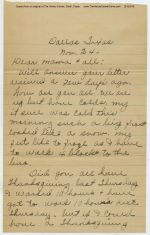 Dallas Texas
Nov. 24 -
Dear Mama & all:
Will answer your letter
received a few days ago.
How are you all. We are
up but have colds, my
it sure was cold this
morning such a big frost
looked like a snow. my
feet like to froze as I have
to walk 2 blocks to the
bus.
Did you all have
Thanksgiving last Thursday
I worked 10 hours & have
got to work 10 hours next
Thursday, but if I could
have a Thanksgiving